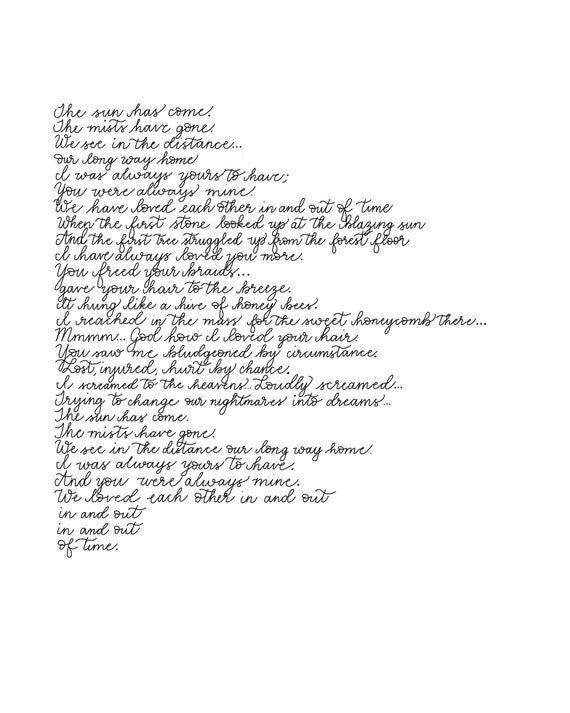 The sun has come.
The mists have gone.
We see in the distance...
our long way home
I was always yours to have;
You were always mine.
We have loved each other in and out of time
When the first stone looked up at the blazing sun
And the first tree struggled up from the forest floor
I have always loved you more.
You freed your braids...
gave your hair to the breeze.
It hung like a hive of honey bees.
I reached in the mass for the sweet honeycomb there...
Mmmm... God how I loved your hair.
You saw me bludgeoned by circumstance.
Lost, injured, hurt by chance.
I screamed to the heavens... Loudly screamed...
Trying to change our nightmares into dreams...
The sun has come.
The mists have gone.
We see in the distance our long way home.
I was always yours to have.
And you were always mine.
We loved each other in and out
in and out
in and out
of time.